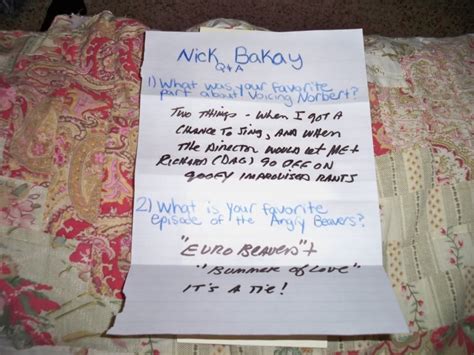 Nick Bakay
Q+A
1) What was your favorite
part about Voicing Norbert?
Two things - When I got a
chance to sing, and when
the director would let me +
Richard (Dag) go off on
goofy improvised rants
2) What is your favorite
episode of the Angry Beavers?
"Euro Beavers" +
"Bummer of Love"
It's a tie!